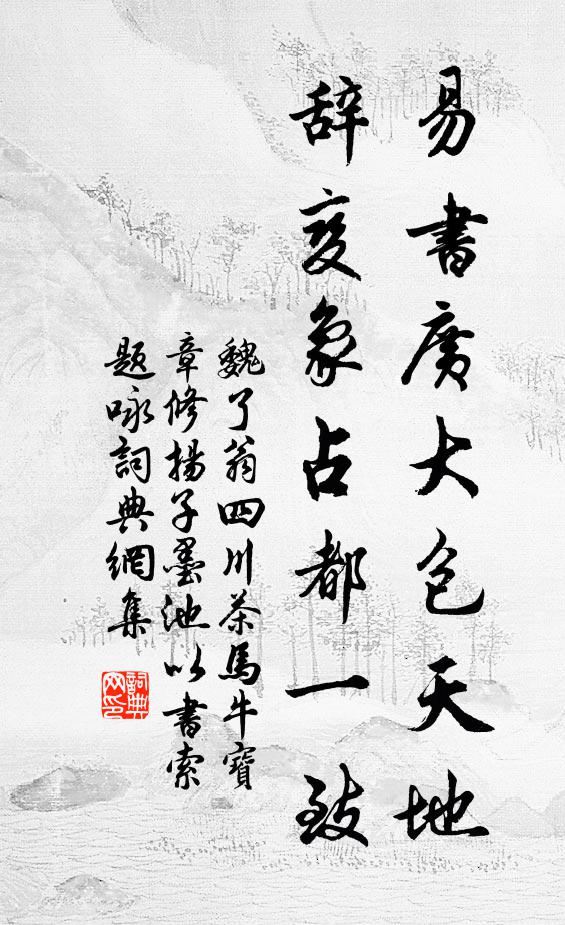 易書廣大包天地
辞变象占都一致
魏了翁四川茶馬牛寶
章修揚子墨池以書索
題咏詞典網集
詞典网印